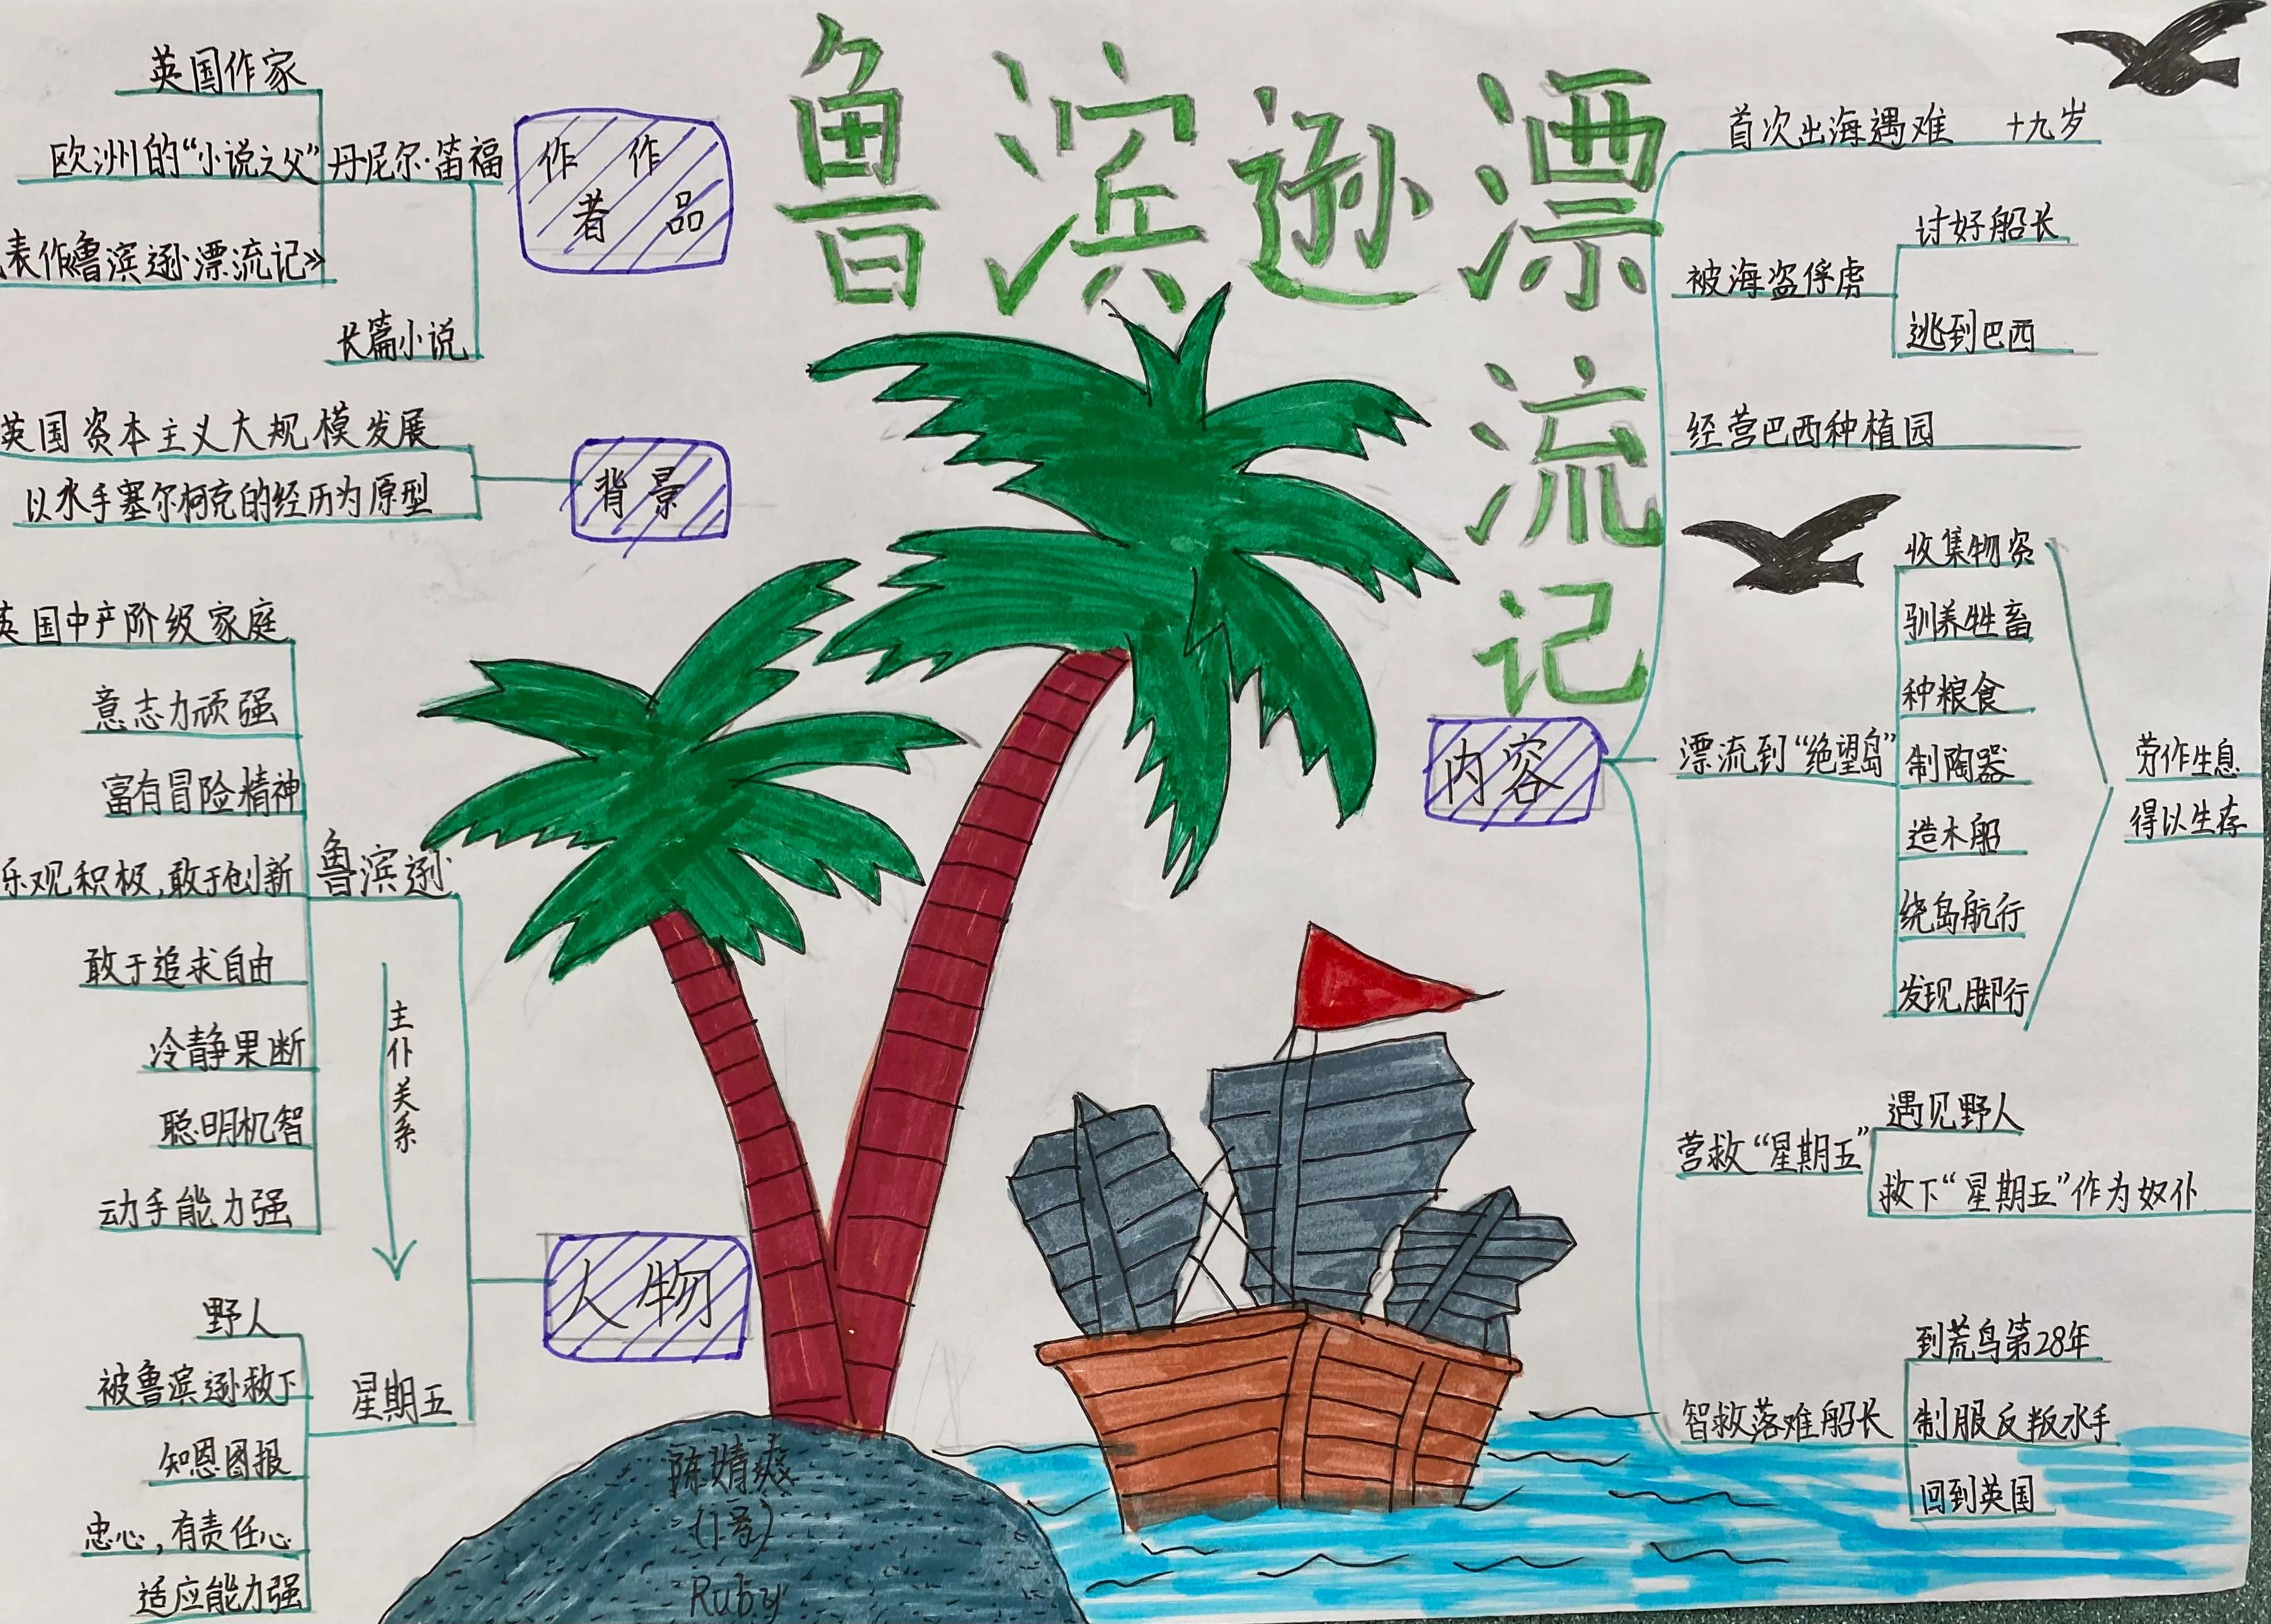 鲁滨逊漂
流
记
作 作
者 品
丹尼尔·笛福
英国作家
欧洲的“小说之父”
表作《鲁滨逊漂流记》
长篇小说
背景
英国资本主义大规模发展
以水手塞尔柯克的经历为原型
人物
鲁滨逊
英国中产阶级家庭
意志力顽强
富有冒险精神
乐观积极,敢于创新
敢于追求自由
冷静果断
聪明机智
动手能力强
主仆关系
星期五
野人
被鲁滨逊救下
知恩图报
忠心,有责任心
适应能力强
内容
首次出海遇难 十九岁
被海盗俘虏
讨好船长
逃到巴西
经营巴西种植园
漂流到“绝望岛”
收集物资
驯养牲畜
种粮食
制陶器
造木船
绕岛航行
发现脚行
劳作生息
得以生存
营救“星期五”
遇见野人
救下“星期五”作为奴仆
智救落难船长
到荒鸟第28年
制服反叛水手
回到英国
陈婧爽
(1号)
Ruby